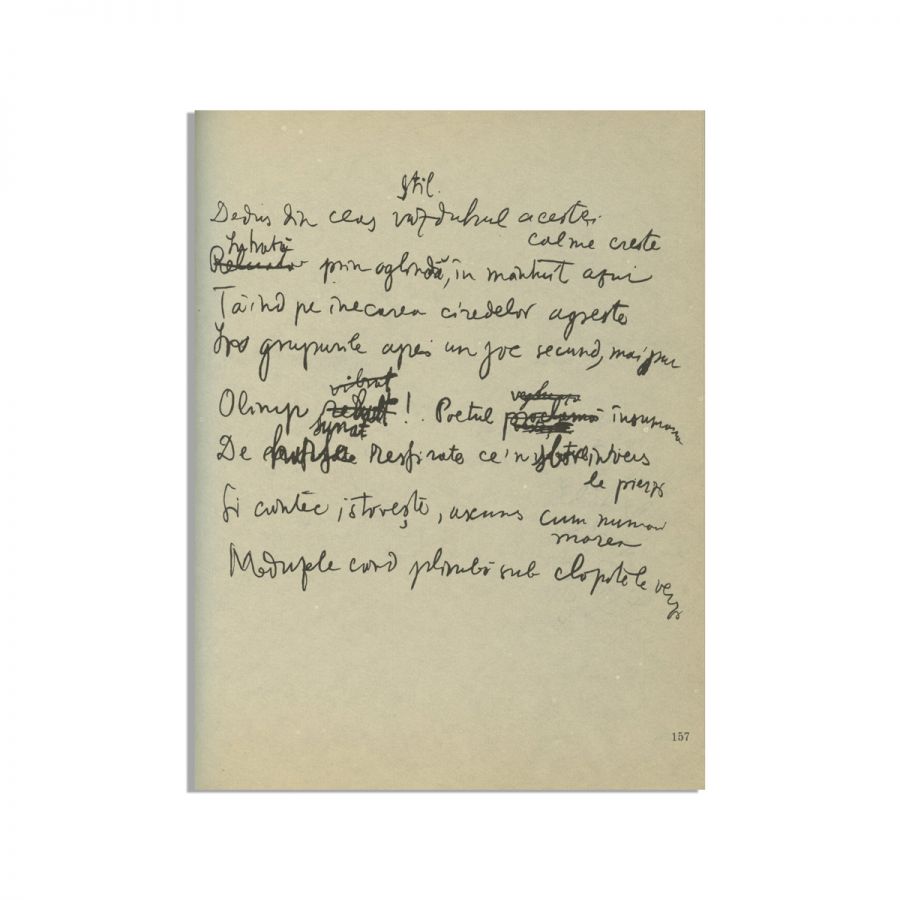 Stil.
Dedus din ceas văzduhul acestei
calme creste
Intrată
prin oglindă, în mântuit azur
Tăind pe înecarea cirezilor agreste
grupurile apei un joc secund, mai pur
vibrat
Olimp ! . Poetul însumează
sumat
De Resfirate ce'n invers
le pierzi
Și cântec istovește, ascuns cum numai
marea
Meduzele când plimbă sub clopotele verzi
157